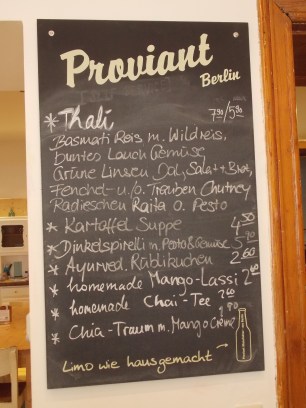 Proviant
Berlin
* Thali 7.90/5.90
Basmati Reis m. Wildreis,
buntes Lauch Gemüse,
Grüne Linsen Dal, Salat + Brot,
Fenchel- u/o. Trauben Chutney
Radieschen Raita o. Pesto
* Kartoffel Suppe 4.50
* Dinkelspirelli m. Pesto & Gemüse 5.90
* Ayurved. Rüblikuchen 2.60
* homemade Mango-Lassi 2.40
* homemade Chai-Tee 2.60
* Chia-Traum m. Mango Creme 2.90
Limo wie hausgemacht